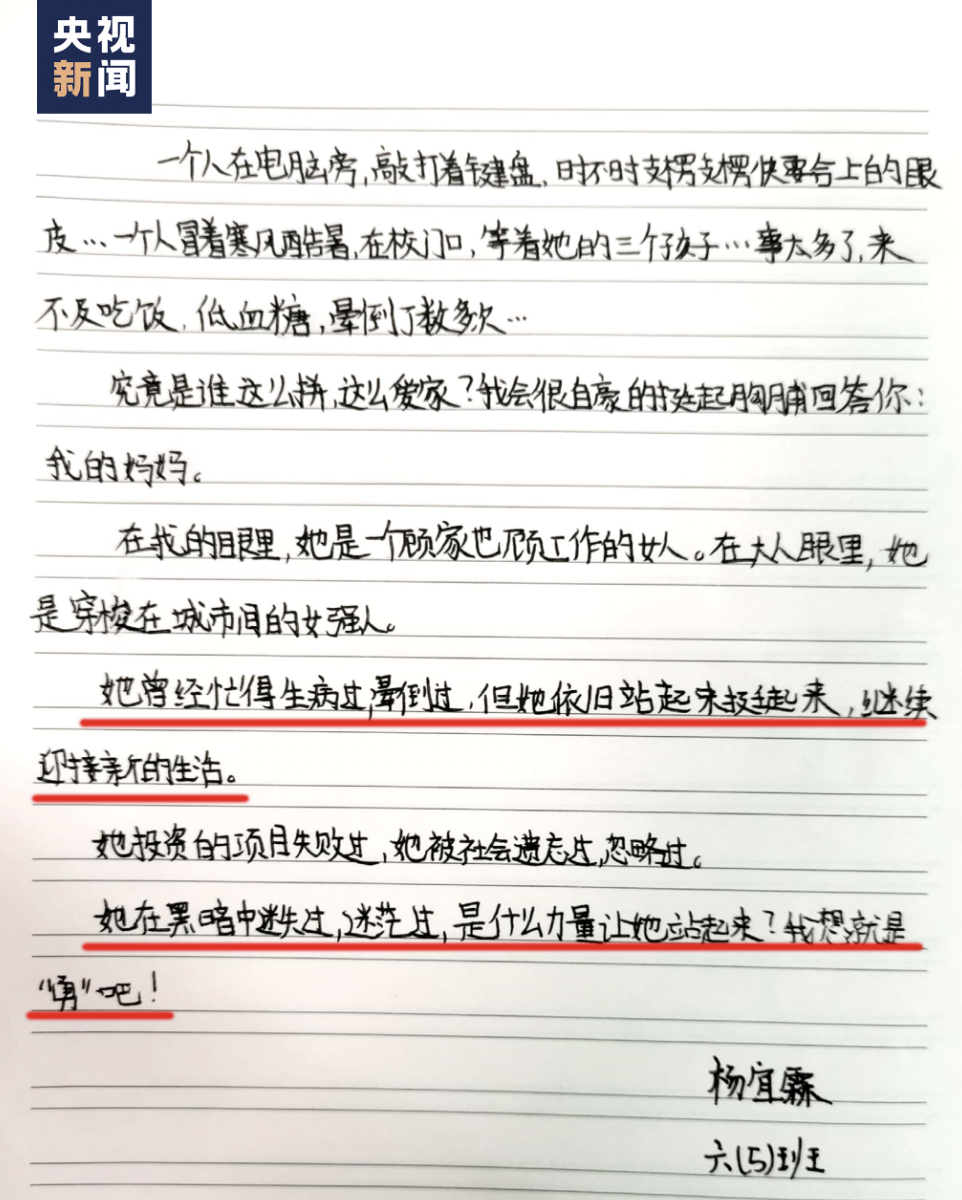 央视
新闻
一个人在电脑旁,敲打着键盘,时不时支楞支楞快要合上的眼
皮…一个人冒着寒风酷暑,在校门口,等着她的三个孩子…事太多了,来
不及吃饭,低血糖,晕倒了数多次…
究竟是谁这么拼,这么爱家?我会很自豪的挺起胸脯回答你:
我的妈妈。
在我的眼里,她是一个顾家也顾工作的女人。在大人眼里,她
是穿梭在城市间的女强人。
她曾经忙得生病过,晕倒过,但她依旧站起来挺起来,继续
迎接新的生活。
她投资的项目失败过,她被社会遗忘过,忽略过。
她在黑暗中迷失过,迷茫过,是什么力量让她站起来?我想就是
“勇”吧!
杨宜霖
六(5)班